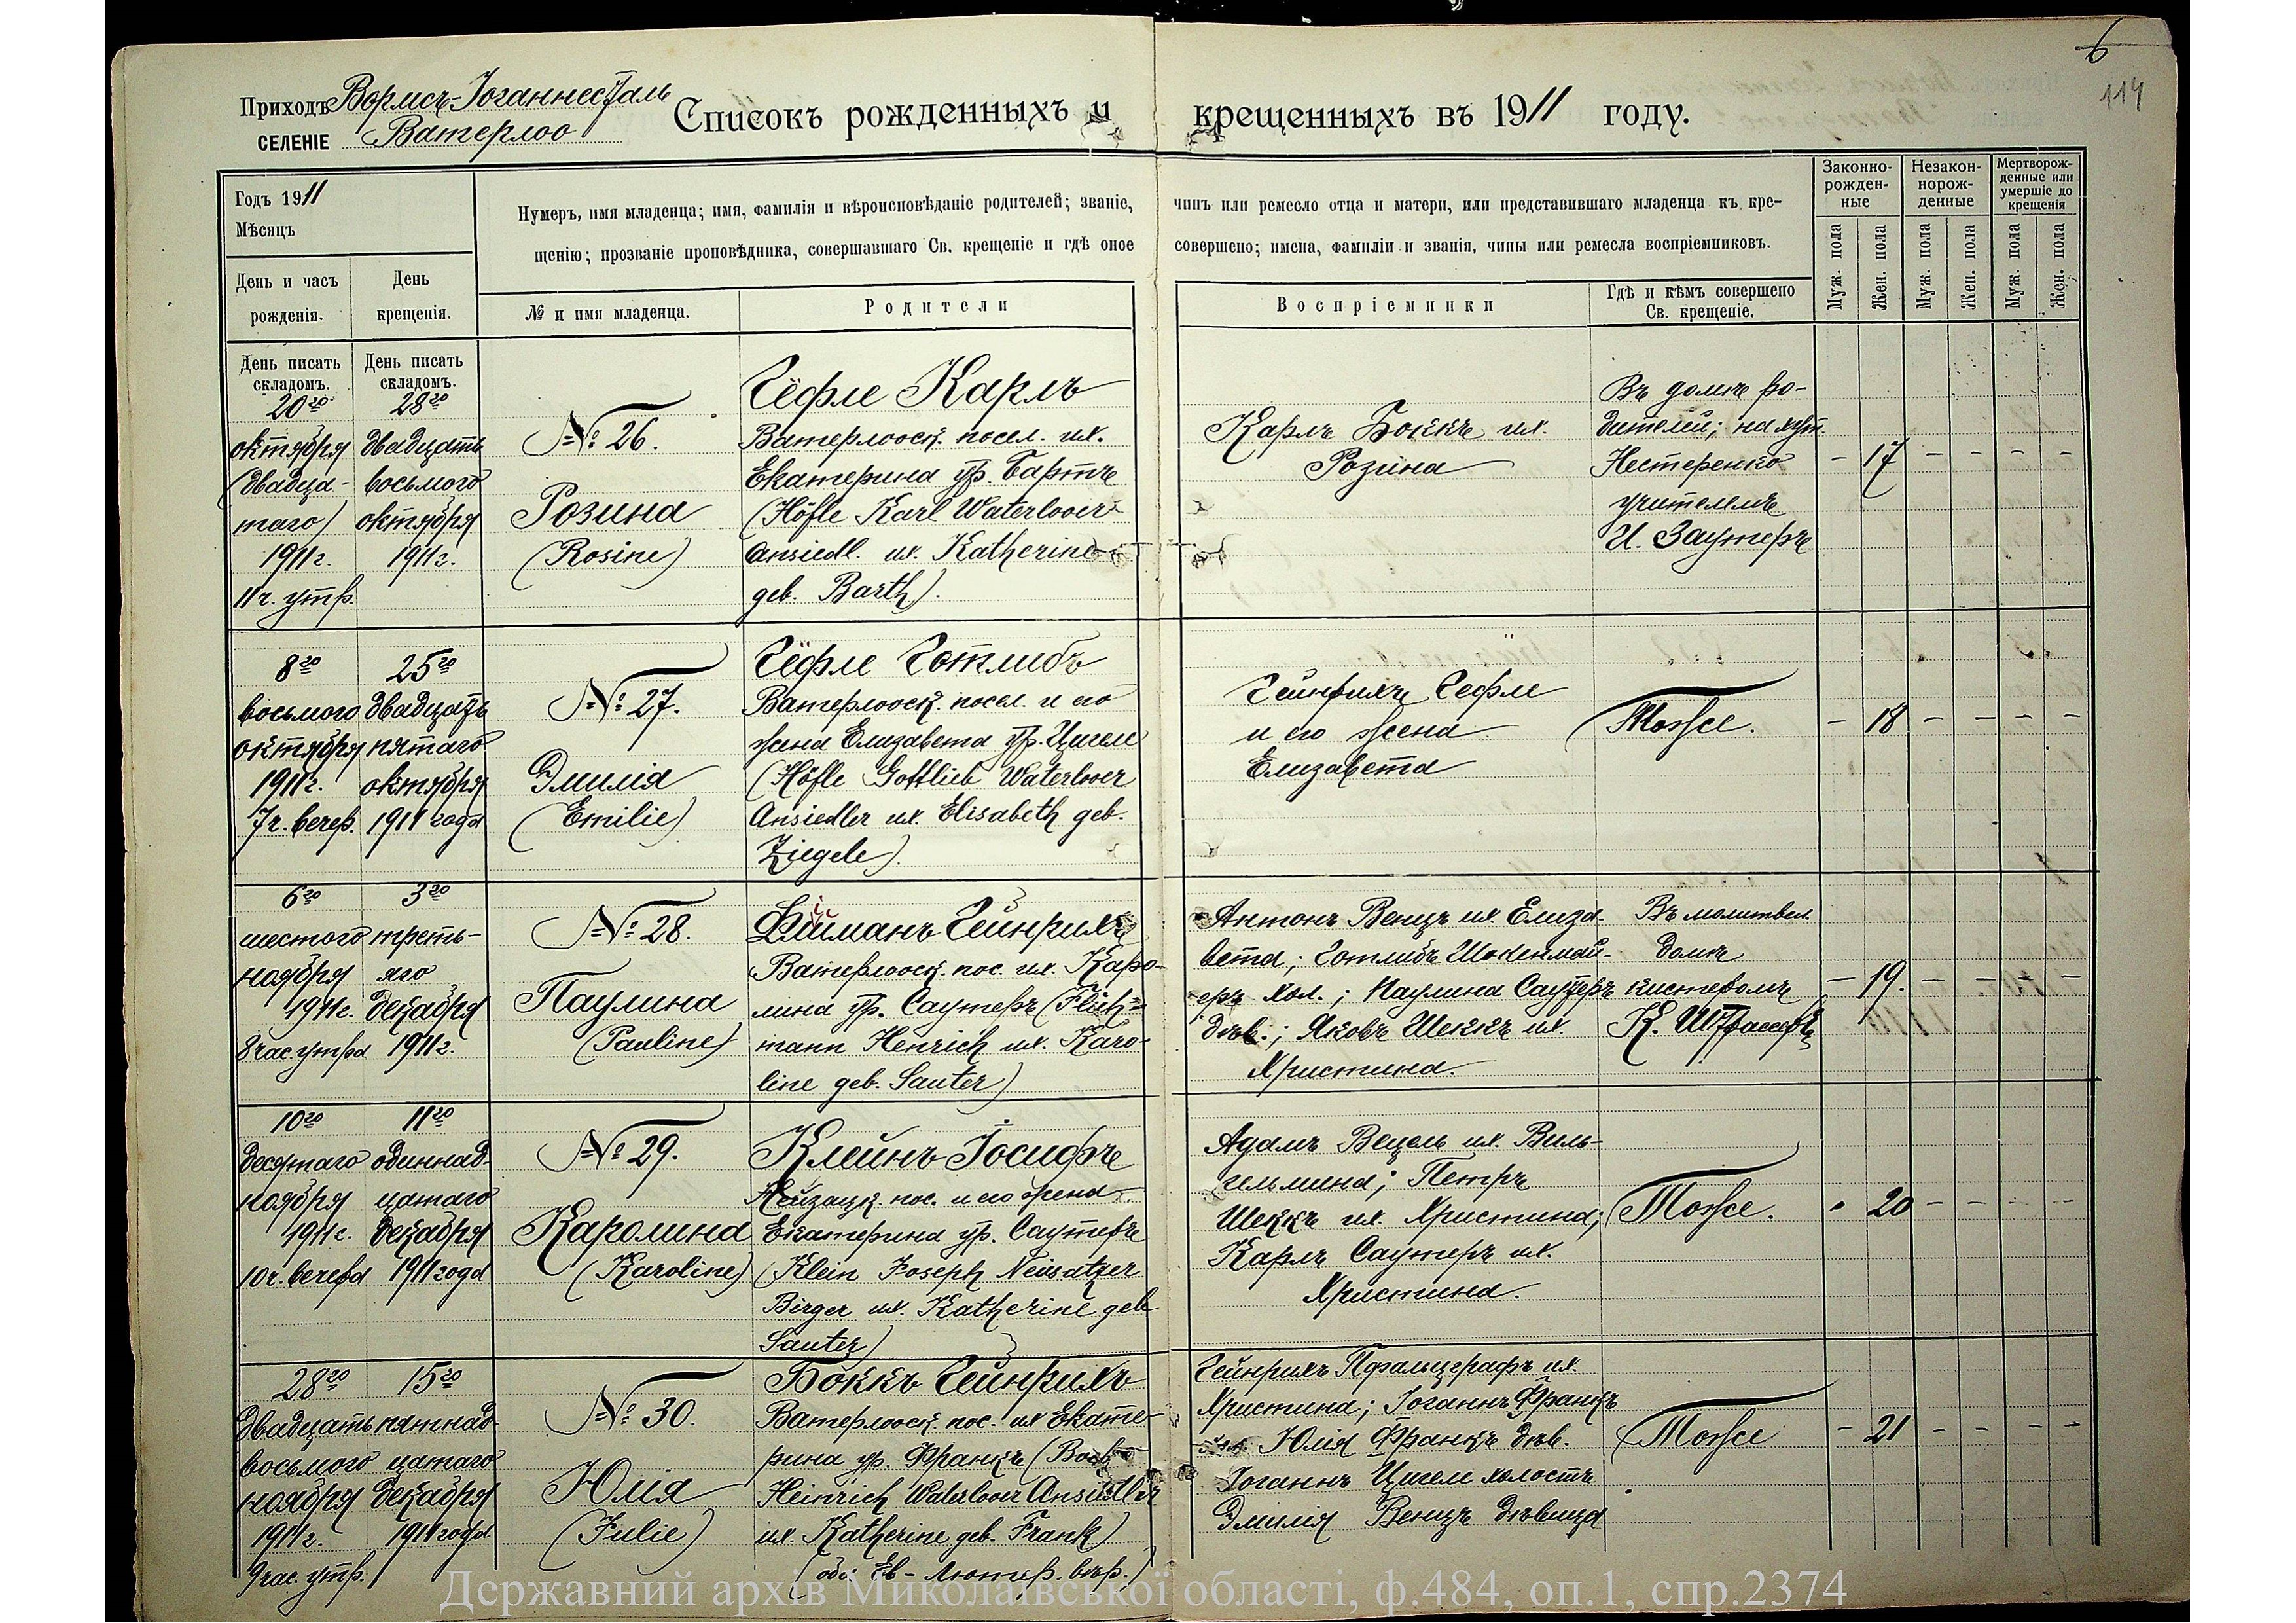 6
114
Приходъ Вормсъ-Іоганнесталь
селеніе Ватерлоо
Списокъ рожденныхъ и крещенныхъ въ 1911 году.
Годъ 1911
Мѣсяцъ
День и часъ рожденія.
День крещенія.
Нумеръ, имя младенца; имя, фамилія и вѣроисповѣданіе родителей; званіе, чинъ или ремесло отца и матери, или представившаго младенца къ кре-
щенію; прозваніе проповѣдника, совершавшаго Св. крещеніе и гдѣ оное совершено; имена, фамиліи и званія, чины или ремесла воспріемниковъ.
№ и имя младенца.
Родители
Воспріемники
Гдѣ и кѣмъ совершено
Св. крещеніе.
Законно-
рожден-
ные
Незакон-
норож-
денные
Мертворож-
денные или
умершіе до
крещенія
Муж. пола
Жен. пола
Муж. пола
Жен. пола
Муж. пола
Жен. пола
День писать
складомъ.
День писать
складомъ.
20го
октября
(двадца-
таго)
1911 г.
11 ч. утр.
28го
двадцать
восьмого
октября
1911 г.
№ 26.
Розина
(Rosine)
Гёфле Карлъ
Ватерлооск. посел. и ж.
Екатерина ур. Бартъ
(Höfle Karl Waterlooer
Ansiedl. u. Katherine
geb. Barth).
Карлъ Боккъ и ж.
Розина
Въ домѣ ро-
дителей; на хут.
Нестеренко
учителемъ
И. Заутеръ
– 17 – – – –
8го
восьмого
октября
1911 г.
7 ч. вечер.
25го
двадцать
пятаго
октября
1911 года
№ 27.
Эмилія
(Emilie)
Гёфле Готлибъ
Ватерлооск. посел. и его
жена Елизавета ур. Цигеле
(Höfle Gottlieb Waterlooer
Ansiedler u. Elisabeth geb.
Ziegele).
Гейнрихъ Гефле
и его жена
Елизавета
Тоже.
– 18 – – – –
6го
шестого
ноября
1911 г.
8 час утра
3го
треть-
яго
декабря
1911 г.
№ 28.
Паулина
(Pauline)
Гейнрихъ
Ватерлооск. пос. и ж. Каро-
лина ур. Саутеръ (Flich=
mann Henrich u. Karo-
line geb. Sauter)
Антонъ Венцъ и ж. Елиза-
вета; Готлибъ Шокенмай-
еръ хол.; Паулина Саутеръ
дѣв.; Яковъ Шеккъ и ж.
Христина.
Въ молитвен.
домѣ
кистеромъ
К. Штрассеръ
– 19. – – – –
10го
десятаго
ноября
1911 г.
10 ч. вечера
11го
одиннад-
цатаго
декабря
1911 года
№ 29.
Каролина
(Karoline)
Клейнъ Іосифъ
Нейзацк. пос. и его жена
Екатерина ур. Саутеръ
(Klein Joseph Neusatzer
Birger u. Katherine geb
Sauter)
Адамъ Вецель и ж. Виль-
гельмина; Петръ
Шеккъ и ж. Христина;
Карлъ Саутеръ и ж.
Христина.
Тоже.
20 – – – –
28го
двадцать
восьмого
ноября
1911 г.
9 час. утр.
15го
пятнад-
цатаго
декабря
1911 года
№ 30.
Юлія
(Julie)
Боккъ Гейнрихъ
Ватерлооск. пос. и ж Екате-
рина ур. Франкъ (Bock
Heinrich Waterlooer Ansiedler
u. Katherine geb. Frank)
(оба Ев-Лютер. вѣр.)
Гейнрихъ Пфальцграфъ и ж.
Христина; Іоганнъ Франкъ
Юлія Франкъ дѣв.
Іоганнъ Цигеле холостъ
Эмилія Венцъ дѣвица
Тоже
– 21 – – – –
Державний архів Миколаївської області, ф.484, оп.1, спр.2374